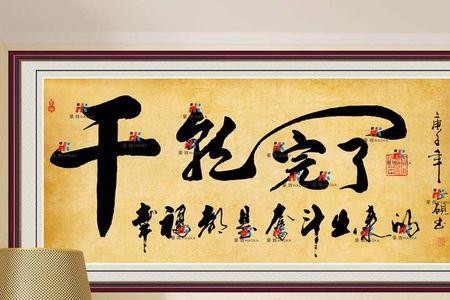 干就完了
幸福都是奋斗出来的
庚子年